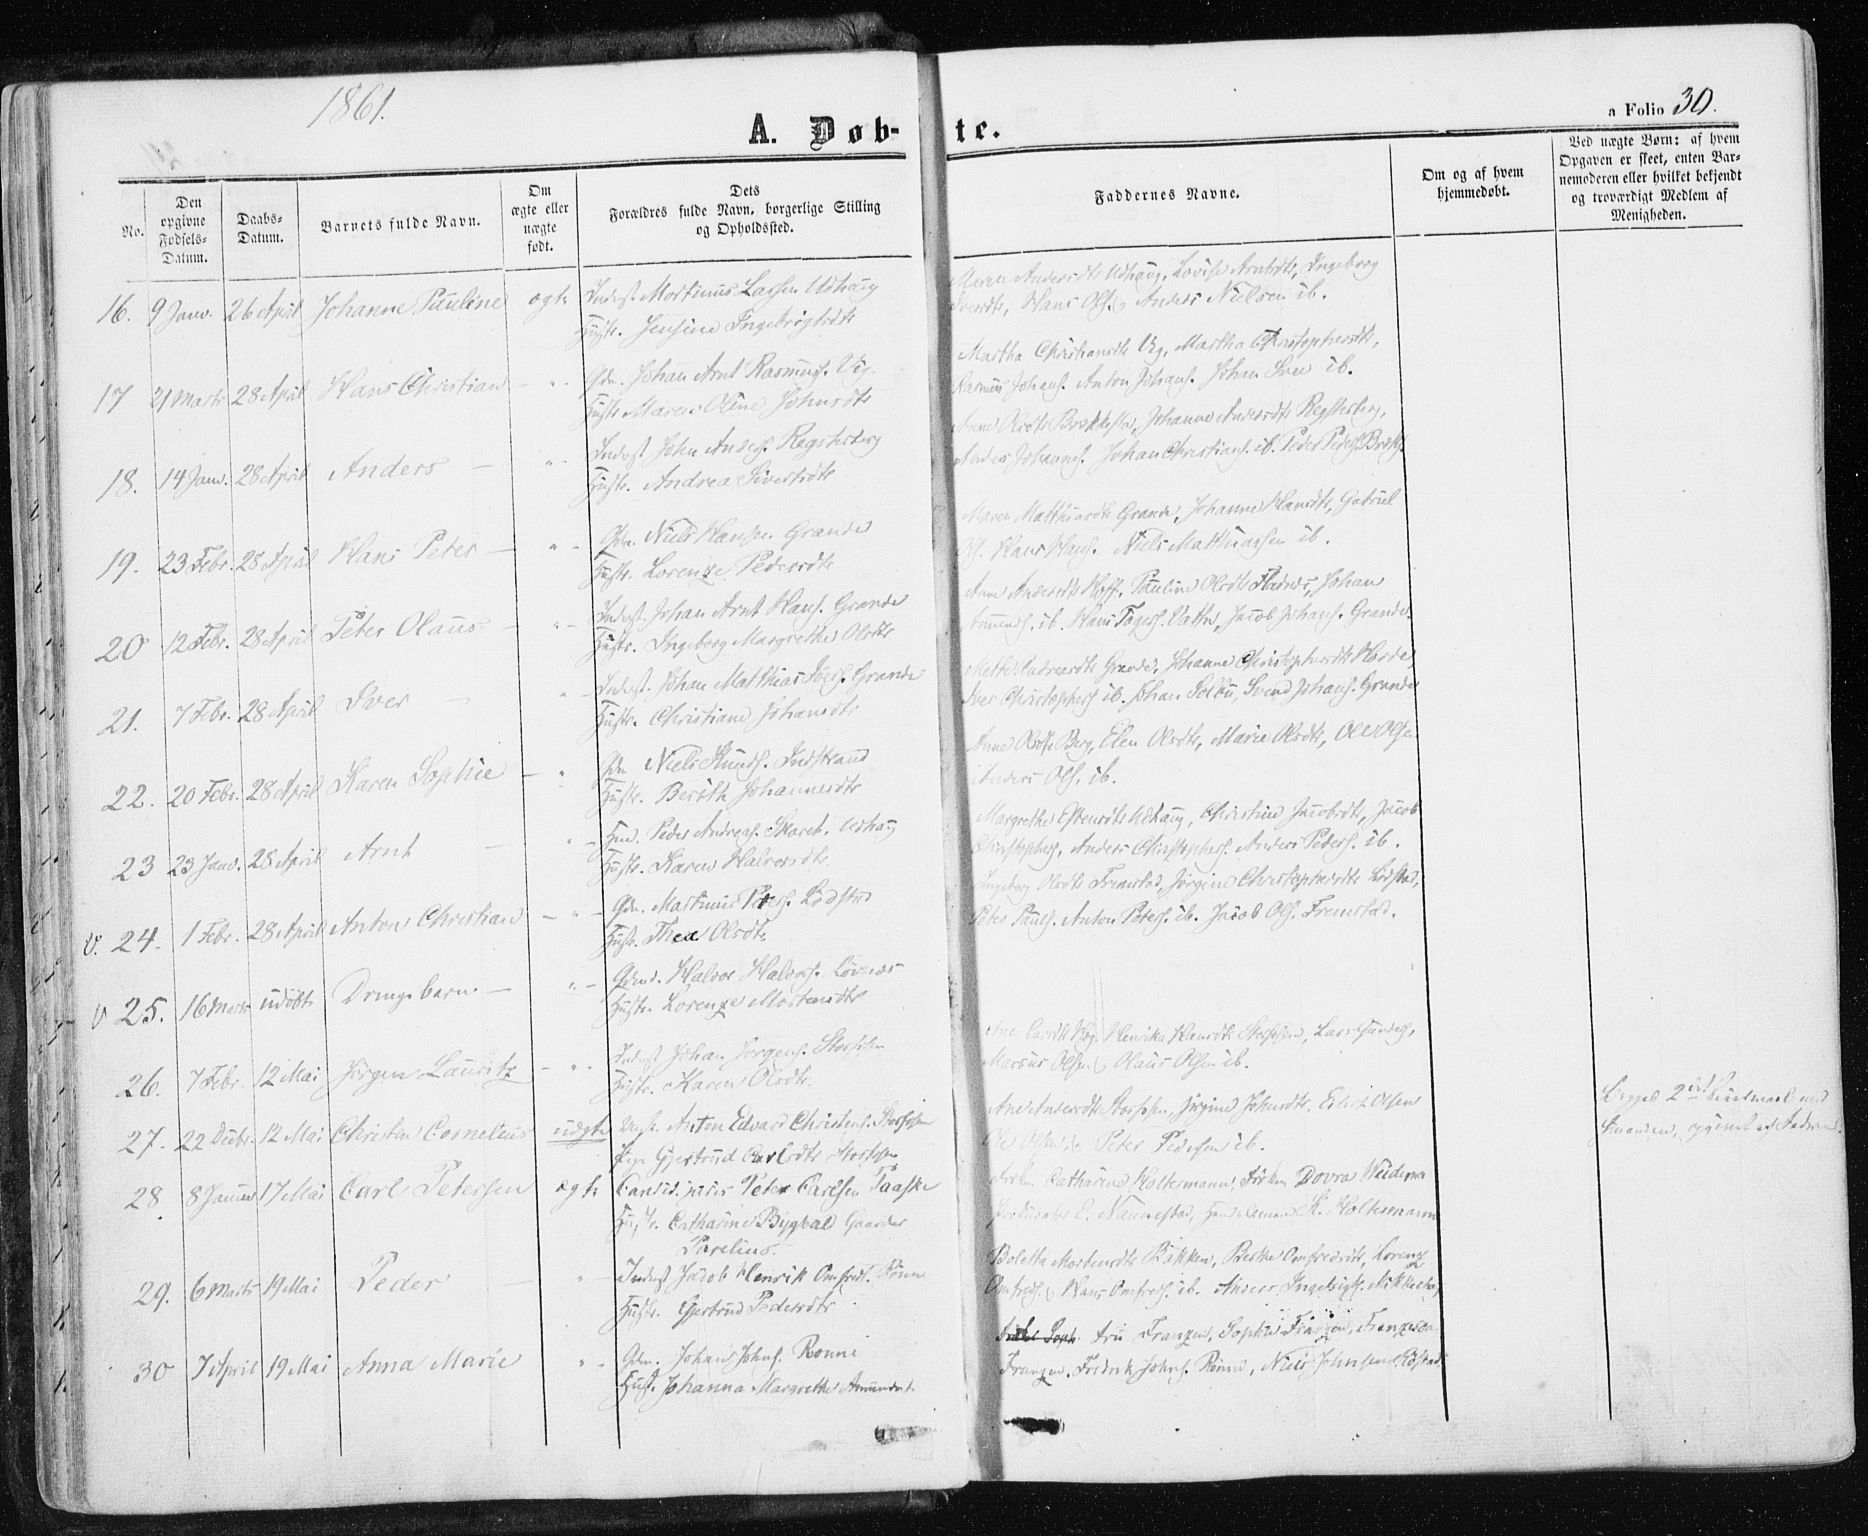 1861.
A. Døb-
te.
a Folio 30.
No.
Den
opgivne
Fødsels-
Datum.
Daabs-
Datum.
Barnets fulde Navn.
Om
ægte eller
uægte
født.
Dets
Forældres fulde Navn, borgerlige Stilling
og Opholdssted.
Faddernes Navne.
Om og af hvem
hjemmedøbt.
Ved uægte Børn: af hvem
Opgaven er skeet, enten Bar-
nemoderen eller hvilket bekjendt
og troværdigt Medlem af
Menigheden.
16. 9 Janv. 26 April Johanne Pauline ægte Inderst. Mortinus Larsen Udhaug
Hustr. Jensine Ingebrigtsdtr
Maren Andersdtr Udhaug, Lovise Arntsdtr, Ingeborg
Iversdtr, Hans Ols. Anders Nielsen ib.
17 21 Marts 28 April Hans Christian - " - Gdm. Johan Arnt Rasmus. Vig.
Hustr Maren Oline Johnsdtr
Martha Christiansdtr Vig, Martha Christophersdtr,
Rasmus Johans. Anton Johans. Johan Iver ib.
18. 14 Janv. 28 April Anders - " - Inderst John Anders.
Hustr. Andrea Sivertsdtr
Anne Olsdtr Johanne Andersdtr
Anders Johannes. Johan Christians. ib. Peder Peders.
19. 23 Febr. 28 April Hans Peter - " - Gdm. Niels Hansen Grande
Hustr. Lorenze Pedersdtr
Maren Matthiasdtr Grande, Johanne Hansdtr, Gabriel
Ols. Hans Hans. Niels Matthiassen ib.
20 12 Febr. 28 April Peter Olaus - " - Inderst. Johan Arnt Hans. Grande
Hustr. Ingeborg Margrethe Olsdtr
Ane Andersdtr Hoff. Pauline Olsdtr Johan
ib. Hans Vatn, Jacob Johans. Grande.
21. 7 Febr. 28 April Iver - " - Inderst. Johan Matthias Grande
Hustr. Christiane Johansdtr
Mette Andreasdtr Grande, Johanne Christophersdtr
Iver Christophers ib. Johan Svend Johans. Grande
22. 20 Febr. 28 April Karen Sophie - " Gdm Niels Knuds. Indstrand
Hustr. Berith Johannesdtr
Anne Olsdtr Berg, Elen Olsdtr, Marie Olsdtr, Ole Olsen
Anders Ols. ib.
23 23 Janv. 28 April Arnt - " - Peder Andreas. Udhaug
Hustr. Karen Halvorsdtr
Margrethe Estensdtr Udhaug, Christine Jacobsdtr, Jacob
Christophers, Anders Christophers. Anders Peders. ib.
v. 24. 1 Febr. 28 April Anton Christian - " - Gdm. Martinus Peters. Rødstad
Hustr. Thea Olsdtr
Ingeborg Olsdtr Fremstad, Jørgine Christophersdtr
Peter Pauls. Anton Peters. ib. Jacob Ols. Fremstad.
v 25. 16 Marts udøbt Drengebarn - " - Gdmd. Halvor Halvors. Løvnæs
Hustr. Lorenze Mortensdtr
26. 7 Febr. 12 Mai Jørgen Lauritz - " - Inderst Johan Jørgens. Storfosen
Hustr. Karen Olsdtr.
Henrika Hansdtr Storfosen, Lars
Marcus Olsen, Olaus Olsen ib.
27. 22 Decbr. 12 Mai Christen Cornelius uægte Ungk. Anton Edvard Christens. Storfosen
Pige Gjertrud Carlsdtr Storfosen
Ane Andersdtr Storfosen, Jørgine Johnsdtr, Olsen
Ole Olsen, Peter Pedersen ib.
Begges 2det Leiermaal med
hinanden, opgivet af Faderen.
28 8 Januar 17 Mai Carl Petersen ægte Candid. juris Peter Carlsen Paaske
Hustr. Catharine Bygbal Gaarder
Parelius.
Frøken Catharine Holtermann, Frøken Dovra
Prokurator E. Nannestad, Handelsmand H. Holtermann
29. 6 Marts 19 Mai Peder - " - Inderst Jacob Henrik Omfredt. Rønne
Hustr. Gjertrud Pedersdtr.
Boletta Mortensdtr Bakken, Omfredsdtr, Lorenz
Omfreds. Hans Omfreds. ib. Anders Ingebrigts.
30 7 April 19 Mai Anna Marie " - Gdm. Johan Johns. Rønne
Hust. Johanna Margrethe
Fru Franzen, Sophie Franzen, Franzisca
Franzen, Fredrik Johns. Rønne, Niels Johnsen Rødstad